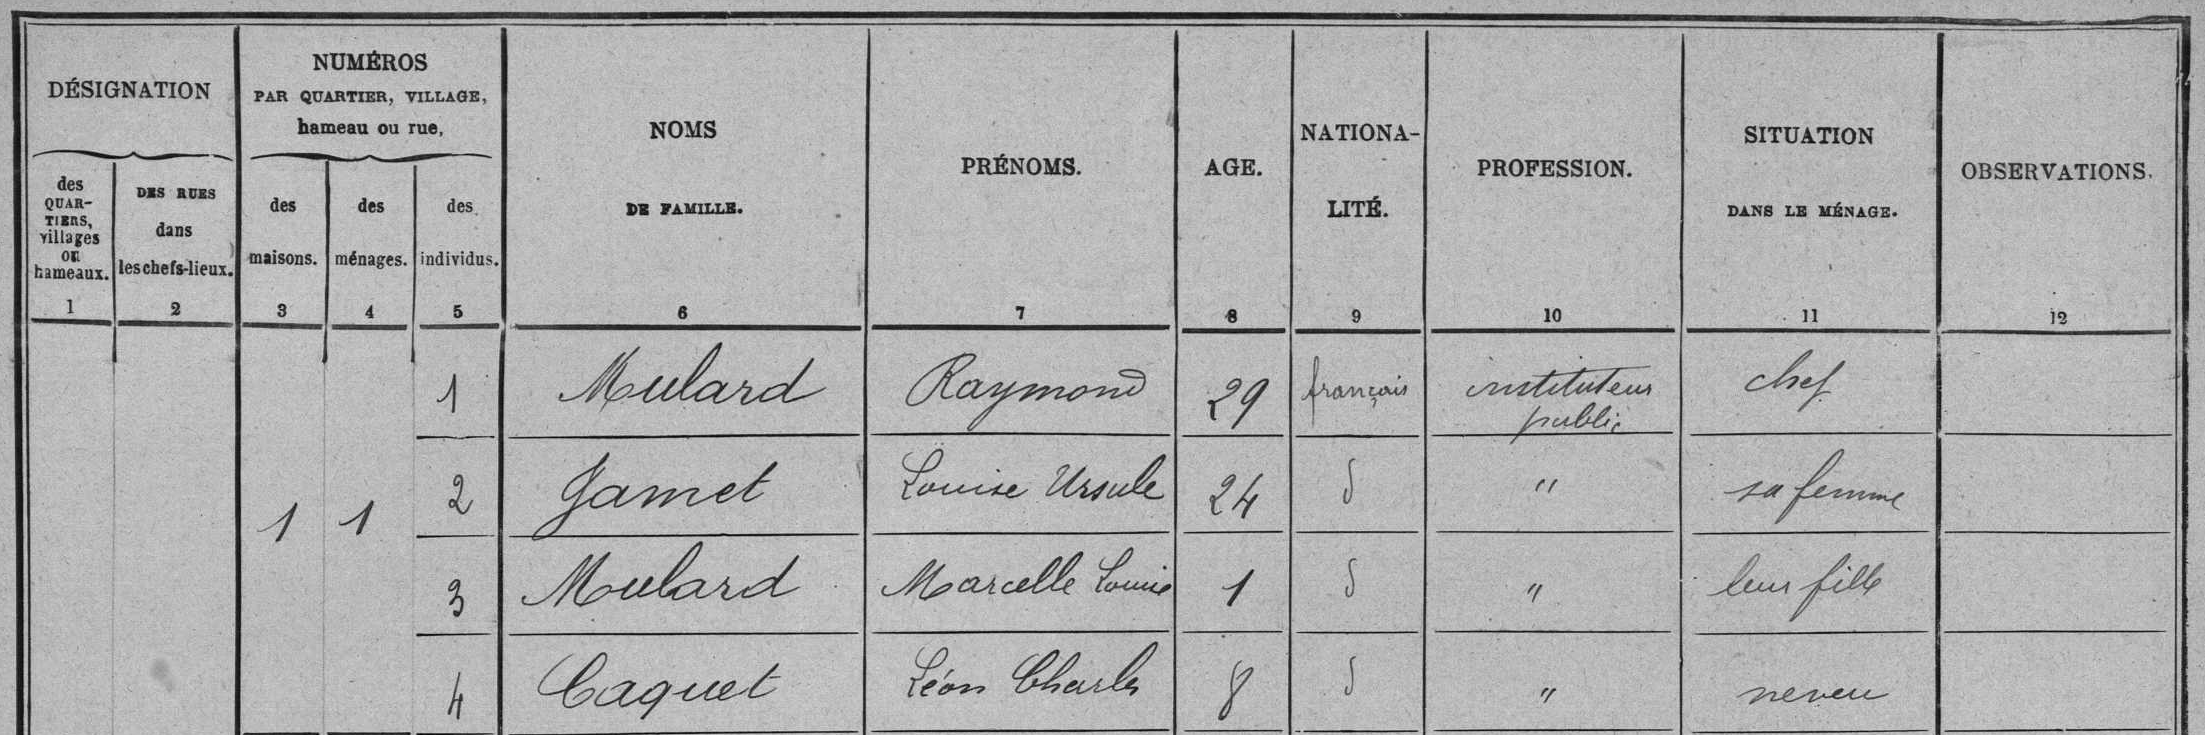 DÉSIGNATION
NUMÉROS
PAR QUARTIER, VILLAGE,
hameau ou rue,
NOMS
DE FAMILLE.
PRÉNOMS.
AGE.
NATIONA-
LITÉ.
PROFESSION.
SITUATION
DANS LE MÉNAGE.
OBSERVATIONS.
des
QUAR-
TIERS,
villages
ou
hameaux.
DES RUES
dans
les chefs-lieux.
des
maisons.
des
ménages.
des
individus.
1 2 3 4 5 6 7 8 9 10 11 12
1 Mulard Raymond 29 français instituteur public chef
2 Jamet Louise Ursule 24 d " sa femme
1 1
3 Mulard Marcelle Louise 1 d " leur fille
4 Caquet Léon Charles 8 d " neveu